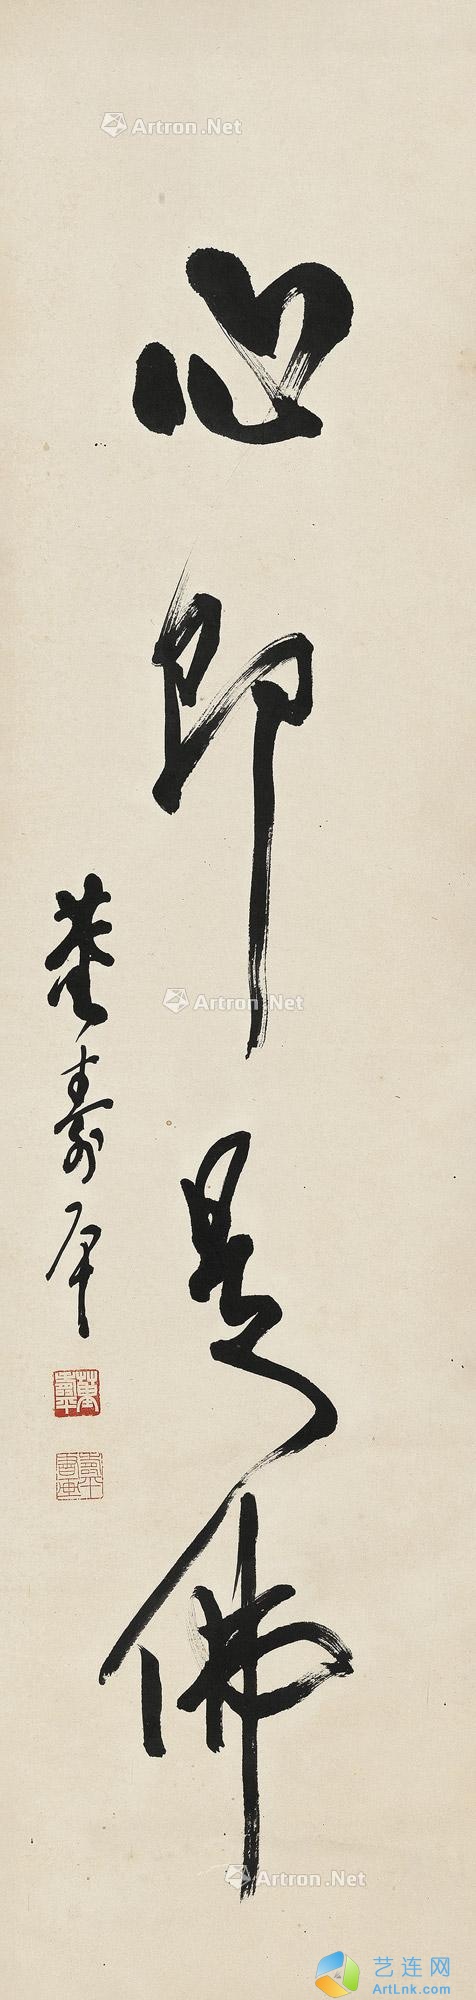 Artron.Net
心即是佛
董寿平
Artron.Net
董壽平
壽平書畫
Artron.Net
艺连网
ArtLnk.com